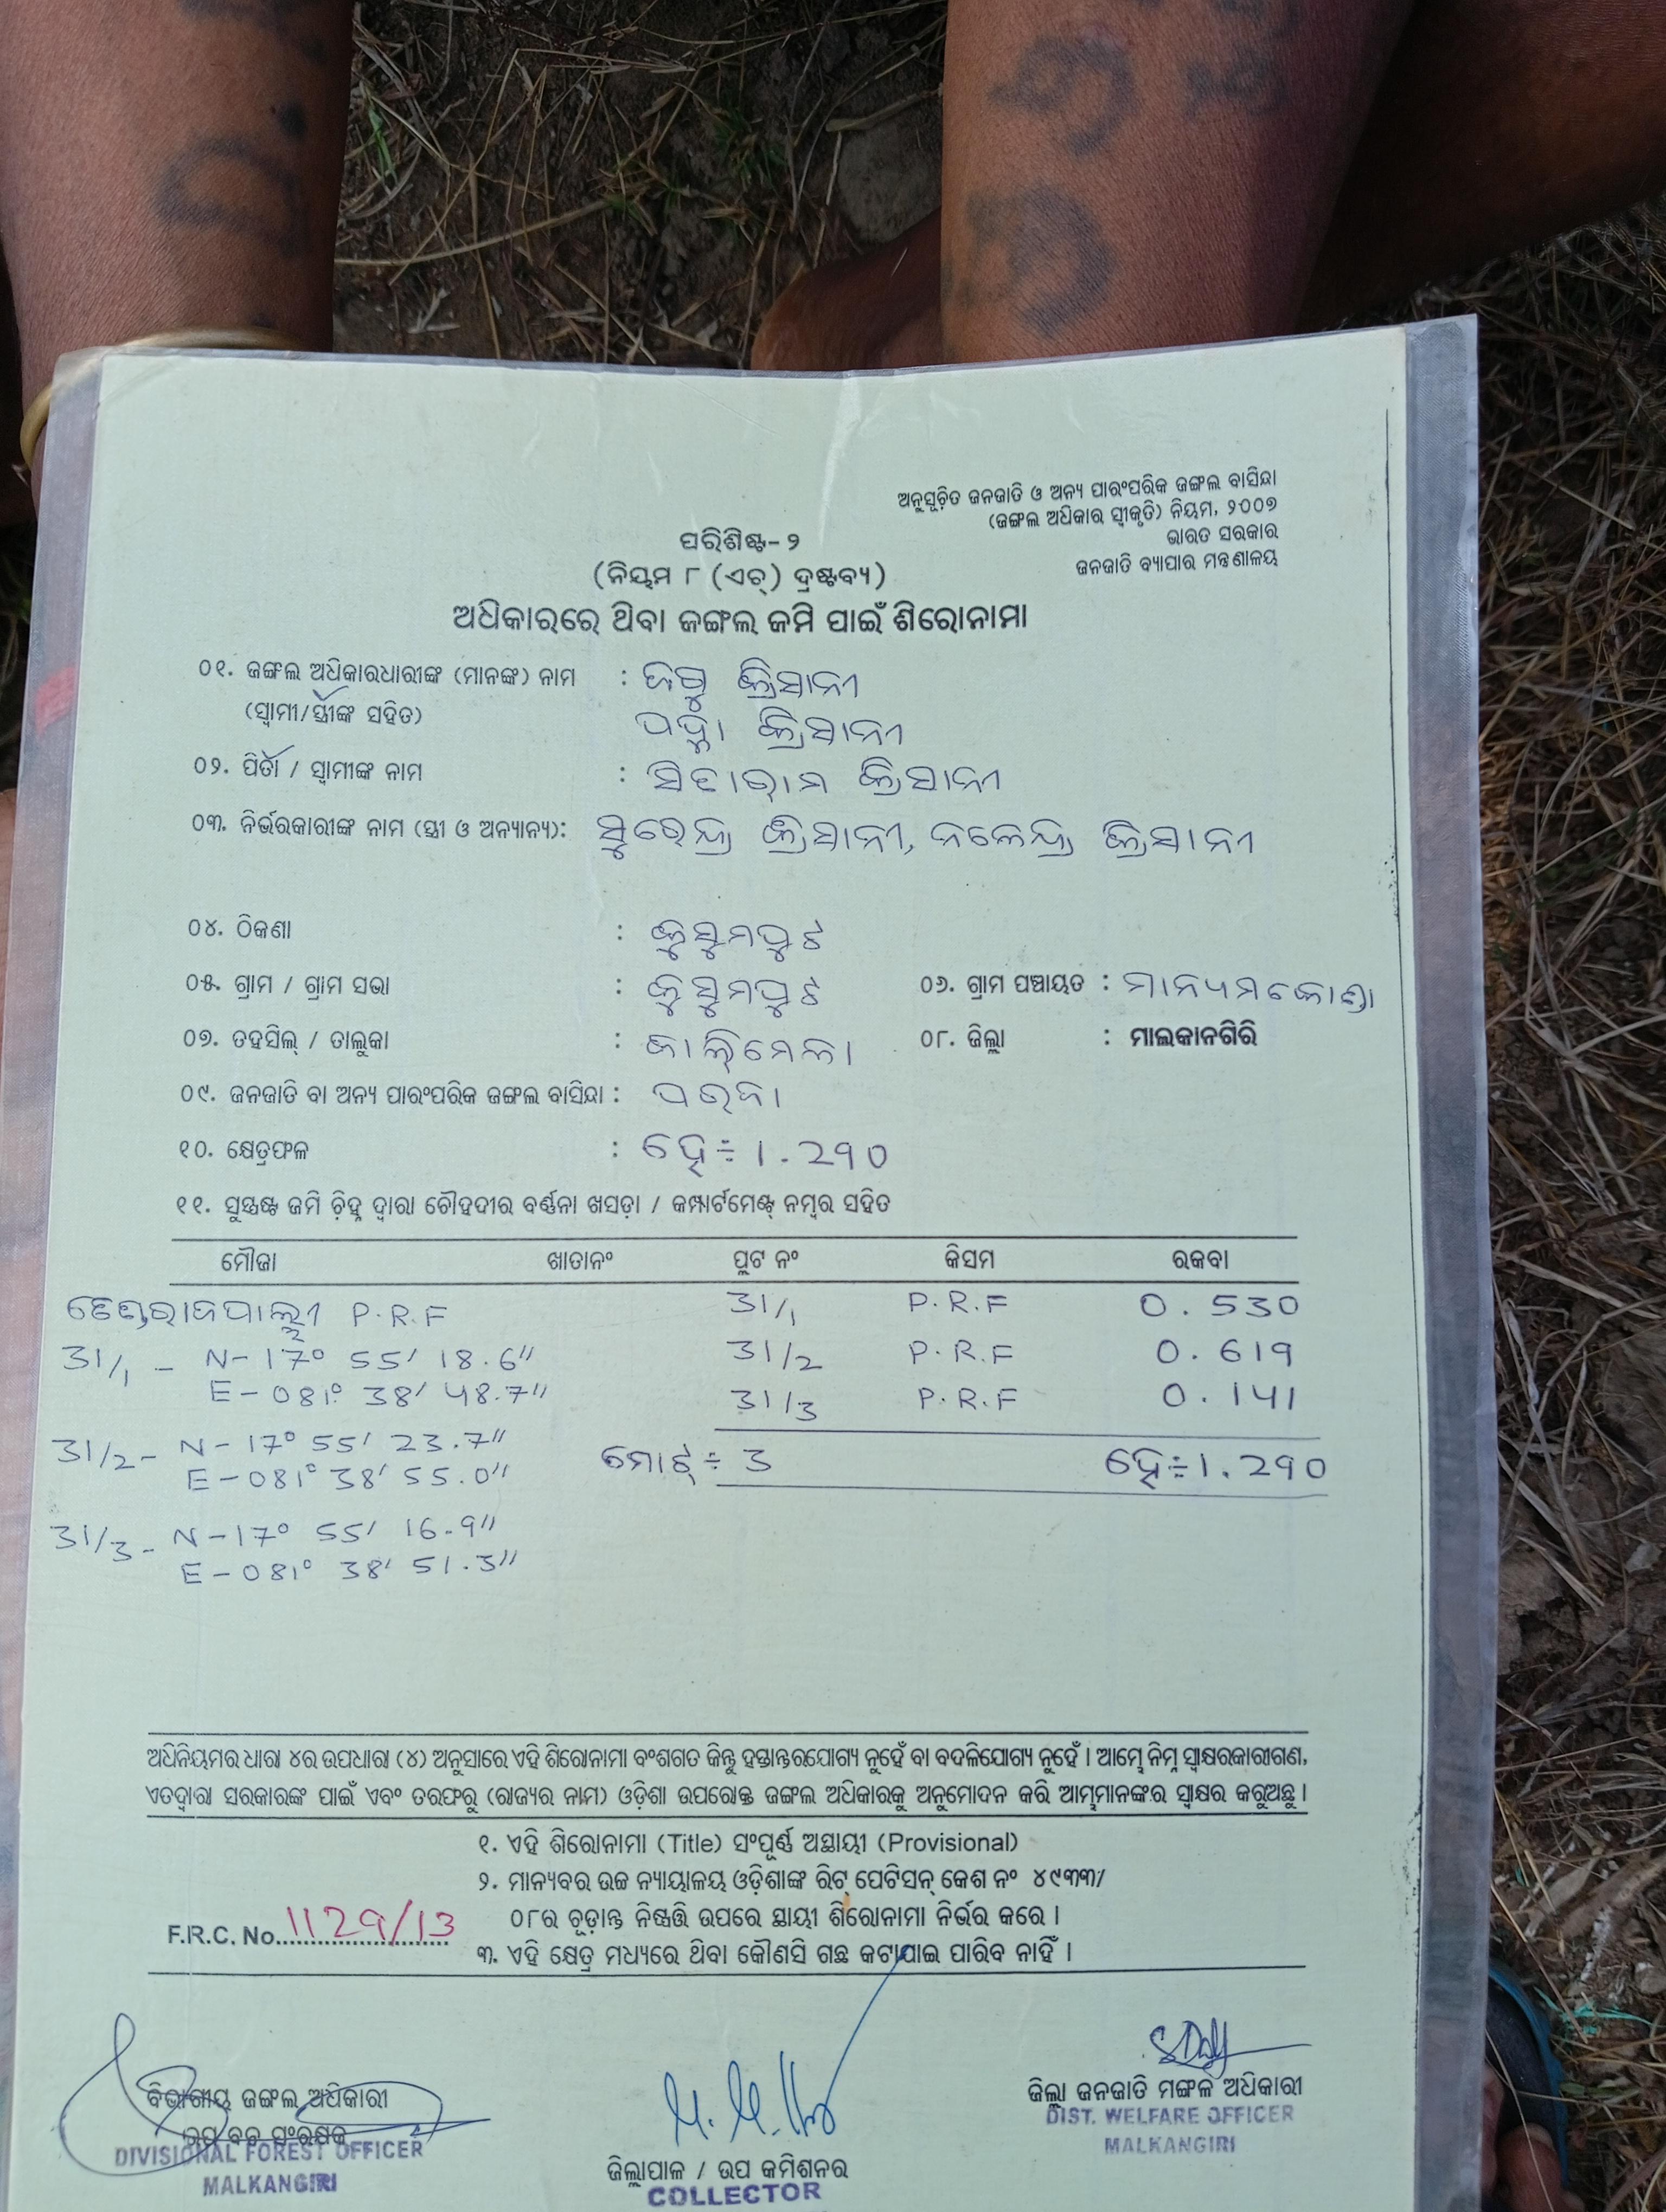 ଅନୁସୂଚିତ ଜନଜାତି ଓ ଅନ୍ୟ ପାରଂପରିକ ଜଙ୍ଗଲ ବାସିନ୍ଦା
(ଜଙ୍ଗଲ ଅଧିକାର ସ୍ୱୀକୃତି) ନିୟମ, ୨୦୦୭
ଭାରତ ସରକାର
ଜନଜାତି ବ୍ୟାପାର ମନ୍ତ୍ରଣାଳୟ
ପରିଶିଷ୍ଟ-୨
(ନିୟମ ୮ (ଏଚ୍) ଦ୍ରଷ୍ଟବ୍ୟ)
ଅଧିକାରରେ ଥିବା ଜଙ୍ଗଲ ଜମି ପାଇଁ ଶିରୋନାମା
୦୧. ଜଙ୍ଗଲ ଅଧିକାରଧାରୀଙ୍କ (ମାନଙ୍କ) ନାମ : କ୍ରିସାନୀ
(ସ୍ୱାମୀ/ସ୍ତ୍ରୀଙ୍କ ସହିତ) ପଦ୍ମା କ୍ରିସାନୀ
୦୨. ପିତା / ସ୍ୱାମୀଙ୍କ ନାମ : କ୍ରିସାନୀ
୦୩. ନିର୍ଭରକାରୀଙ୍କ ନାମ (ସ୍ତ୍ରୀ ଓ ଅନ୍ୟାନ୍ୟ): ସୁରେନ୍ଦ୍ର କ୍ରିସାନୀ, କ୍ରିସାନୀ
୦୪. ଠିକଣା : କୁସୁମପୁଟ
୦୫. ଗ୍ରାମ / ଗ୍ରାମ ସଭା : କୁସୁମପୁଟ ୦୬. ଗ୍ରାମ ପଞ୍ଚାୟତ : ମାନ୍ୟମକୋଣ୍ଡା
୦୭. ତହସିଲ୍ / ତାଲୁକା : କାଲିମେଳା ୦୮. ଜିଲ୍ଲା : ମାଲକାନଗିରି
୦୯. ଜନଜାତି ବା ଅନ୍ୟ ପାରଂପରିକ ଜଙ୍ଗଲ ବାସିନ୍ଦା : ପରଜା
୧୦. କ୍ଷେତ୍ରଫଳ : ହେ÷ 1.290
୧୧. ସୁସ୍ପଷ୍ଟ ଜମି ଚିହ୍ନ ଦ୍ୱାରା ଚୌହଦୀର ବର୍ଣ୍ଣନା ଖସଡ଼ା / କମ୍ପାର୍ଟମେଣ୍ଟ୍ ନମ୍ବର ସହିତ
ମୌଜା ଖାତାନଂ ପ୍ଲଟ ନଂ କିସମ ରକବା
P.R.F 31/1 P.R.F 0.530
31/1 - N-17° 55' 18.6" 31/2 P.R.F 0.619
E-081° 38' 48.7" 31/3 P.R.F 0.141
31/2 - N-17° 55' 23.7"
E-081° 38' 55.0" ମୋଟ୍ ÷ 3 ହେ÷ 1.290
31/3 - N-17° 55' 16.9"
E-081° 38' 51.3"
ଅଧିନିୟମର ଧାରା ୪ର ଉପଧାରା (୪) ଅନୁସାରେ ଏହି ଶିରୋନାମା ବଂଶଗତ କିନ୍ତୁ ହସ୍ତାନ୍ତରଯୋଗ୍ୟ ନୁହେଁ ବା ବଦଳିଯୋଗ୍ୟ ନୁହେଁ । ଆମ୍ଭେ ନିମ୍ନ ସ୍ୱାକ୍ଷରକାରୀଗଣ,
ଏତଦ୍ୱାରା ସରକାରଙ୍କ ପାଇଁ ଏବଂ ତରଫରୁ (ରାଜ୍ୟର ନାମ) ଓଡ଼ିଶା ଉପରୋକ୍ତ ଜଙ୍ଗଲ ଅଧିକାରକୁ ଅନୁମୋଦନ କରି ଆମ୍ଭମାନଙ୍କର ସ୍ୱାକ୍ଷର କରୁଅଛୁ ।
୧. ଏହି ଶିରୋନାମା (Title) ସଂପୂର୍ଣ୍ଣ ଅସ୍ଥାୟୀ (Provisional)
୨. ମାନ୍ୟବର ଉଚ୍ଚ ନ୍ୟାୟାଳୟ ଓଡ଼ିଶାଙ୍କ ରିଟ୍ ପେଟିସନ୍ କେଶ ନଂ ୪୯୩୩/
୦୮ର ଚୂଡ଼ାନ୍ତ ନିଷ୍ପତ୍ତି ଉପରେ ସ୍ଥାୟୀ ଶିରୋନାମା ନିର୍ଭର କରେ ।
F.R.C. No. 1129/13
୩. ଏହି କ୍ଷେତ୍ର ମଧ୍ୟରେ ଥିବା କୌଣସି ଗଛ କଟାଯାଇ ପାରିବ ନାହିଁ ।
ବିଭାଗୀୟ ଜଙ୍ଗଲ ଅଧିକାରୀ
ଉପ ବନ ସଂରକ୍ଷକ
DIVISIONAL FOREST OFFICER
MALKANGIRI
ଜିଲ୍ଲାପାଳ / ଉପ କମିଶନର
COLLECTOR
ଜିଲ୍ଲା ଜନଜାତି ମଙ୍ଗଳ ଅଧିକାରୀ
DIST. WELFARE OFFICER
MALKANGIRI